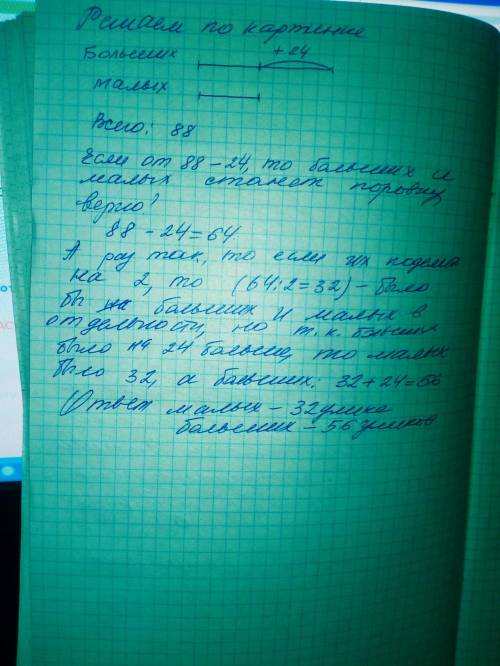 Решаем по картинке
Больших + 24
малых
Всего: 88
Если от 88 - 24, то больших и
малых станет поровну,
верно?
88 - 24 = 64
А раз так, то если их
на 2, то (64:2=32) - было
бы больших и малых в
отдельности, но т.к. больших
было на 24 больше, то малых
было 32, а больших: 32+24=56
Ответ малых - 32 улика
больших - 56 уликов